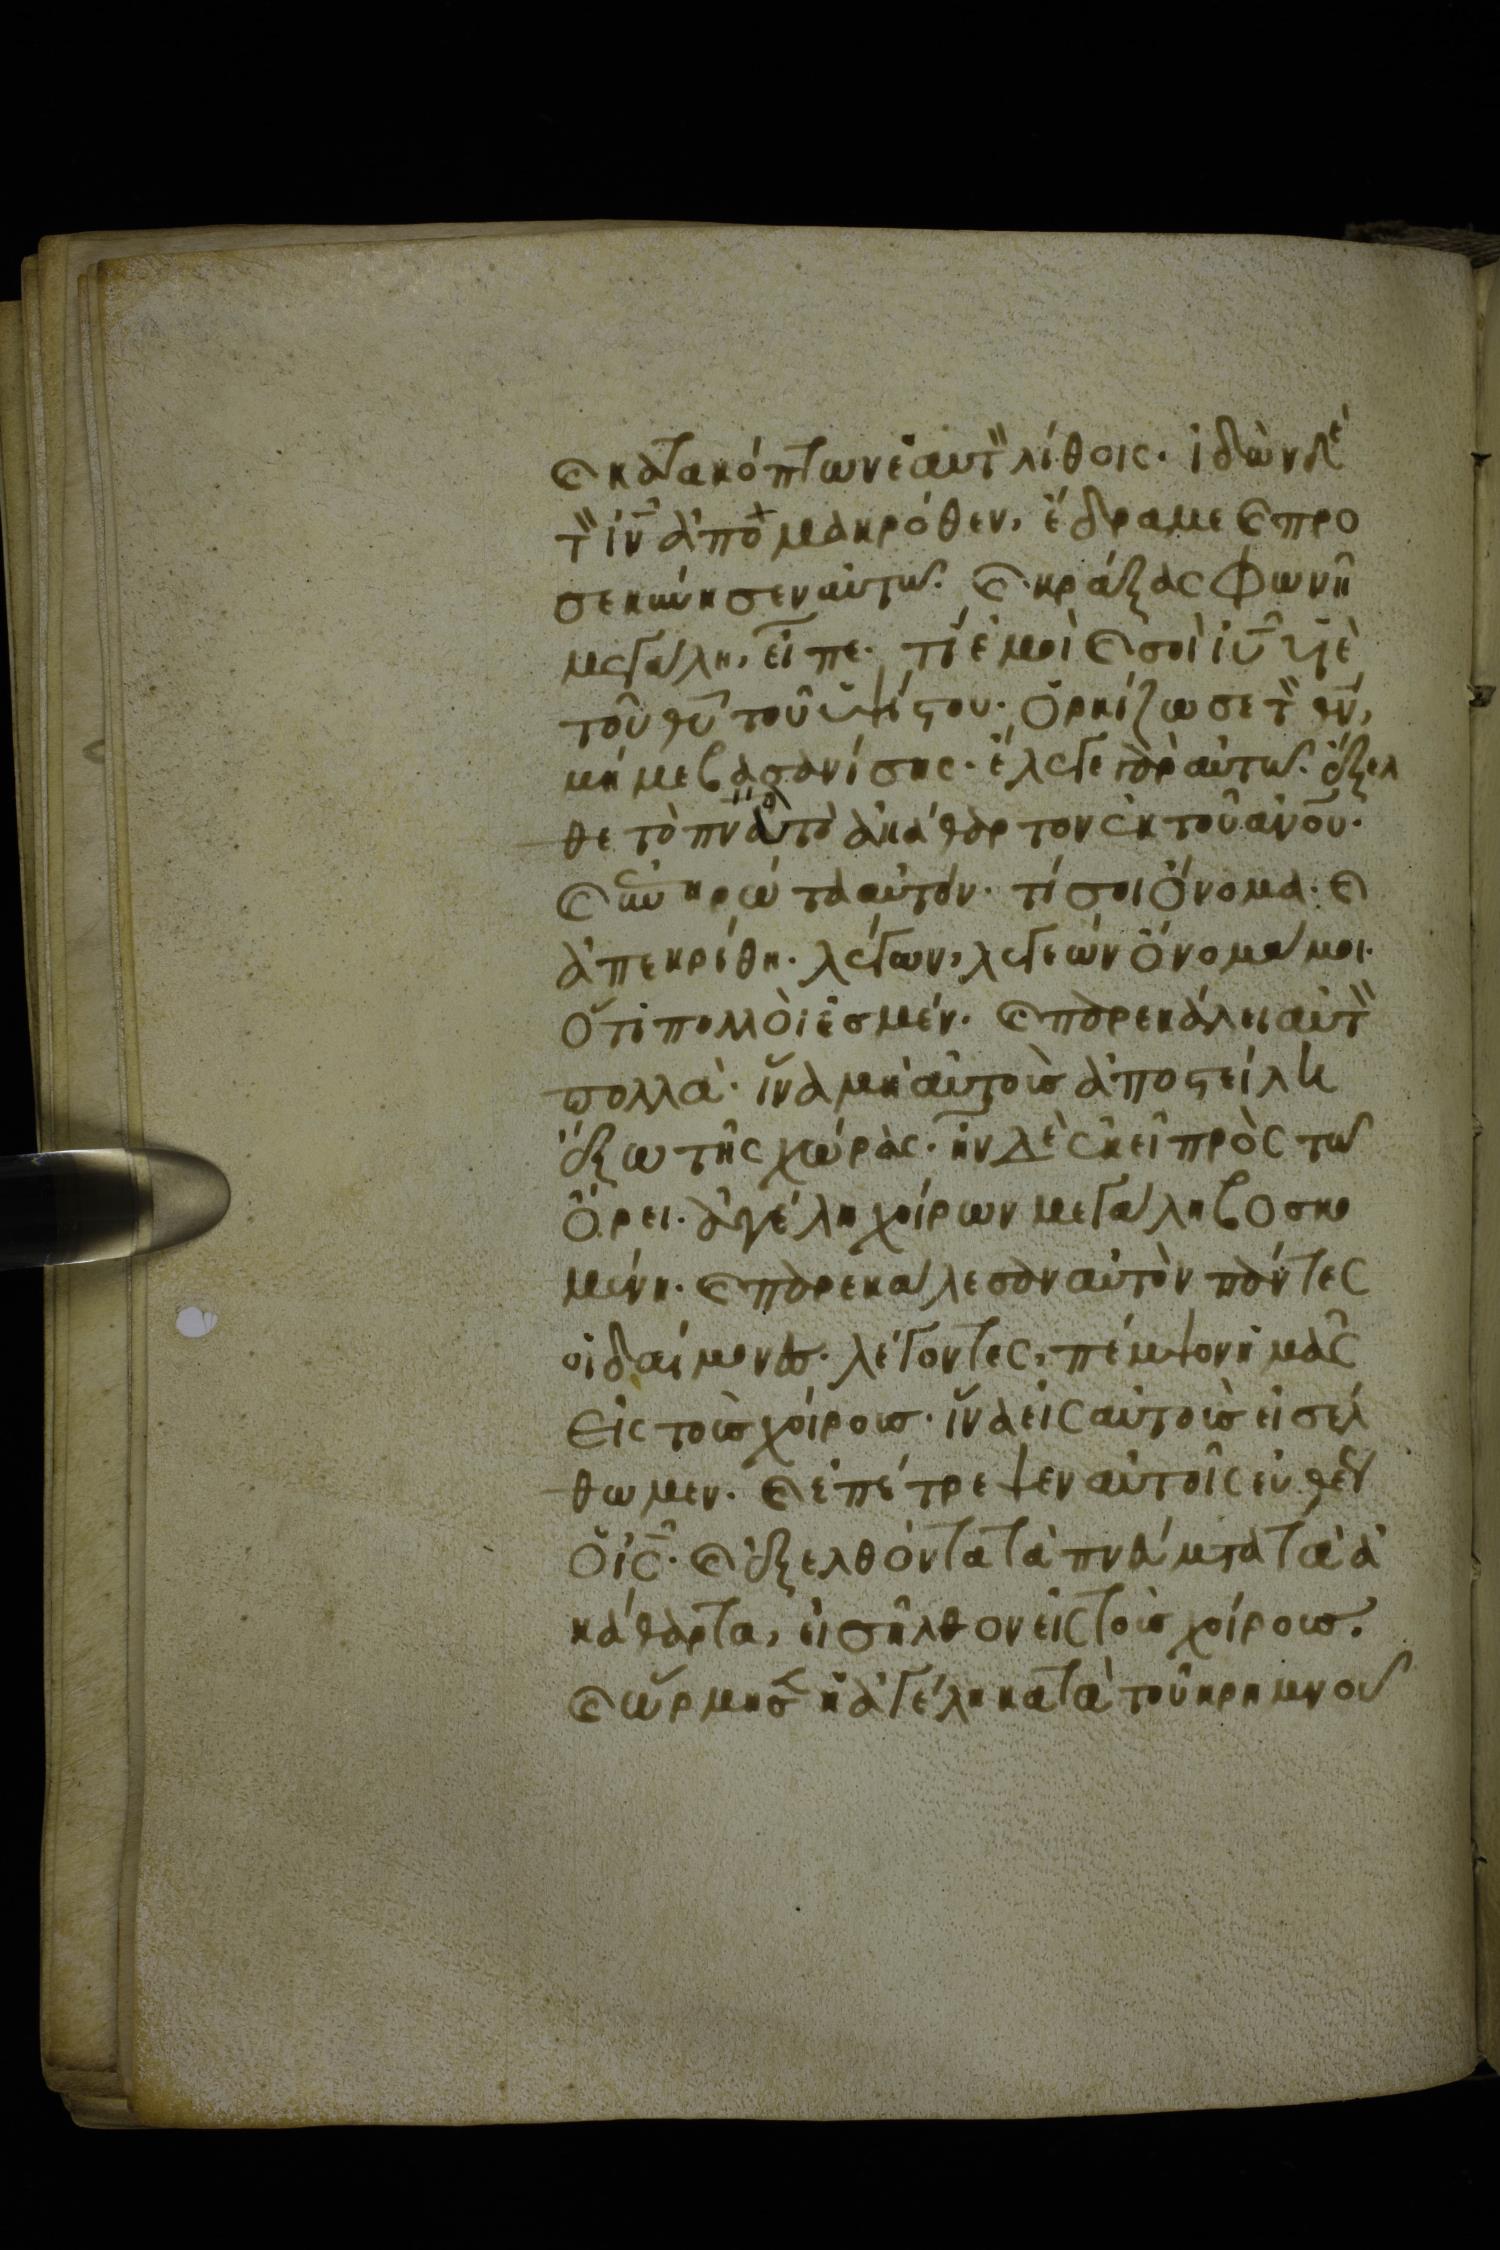 ϗ κατακόπτων ἑαυτ λίθοις. ἰδὼν δὲ
τ ἰν ἀπο μακρόθεν, ἔδραμε ϗ προ
σεκύνησεν αὐτῶ. ϗ κράξας φωνῆ
μεγάλη, εἶπε. τί ἐμοὶ ϗ σοὶ ἰυ υἱὲ
τοῦ θυ τοῦ ὑψίστου. ὁρκίζω σε τ θν,
μή με βασανίσης. ἔλεγε γὰρ αὐτῶ. ἔξελ
θε τὸ πνα τὸ ἀκάθαρτον ἐκ τοῦ ανου.
ϗ ἐπηρώτα αὐτόν. τί σοι ὄνομα. ϗ
ἀπεκρίθη. λέγων, λεγεών ὄνομά μοι.
ὅτι πολλοὶ ἐσμέν. ϗ παρεκάλει αὐτ
πολλὰ. ἵνα μὴ αὐτοὺς ἀποστείλη
ἔξω τῆς χώρας. ἦν δὲ ἐκεῖ πρὸς τῶ
ὄρει. ἀγέλη χοίρων μεγάλη βοσκο
μένη. ϗ παρεκάλεσαν αὐτὸν πάντες
οἱ δαίμονες. λέγοντες, πέμψον ἡμᾶς
εἰς τοὺς χοίρους. ἵνα εἰς αὐτοὺς εἰσέλ
θωμεν. ϗ ἐπέτρεψεν αὐτοῖς εὐθέως
ὁ ις. ϗ ἐξελθόντα τὰ πνάματα τὰ ἀ
κάθαρτα, εἰσῆλθον εἰς τοὺς χοίρους.
ϗ ὥρμησ ἡ ἀγέλη κατὰ τοῦ κρημνοῦ